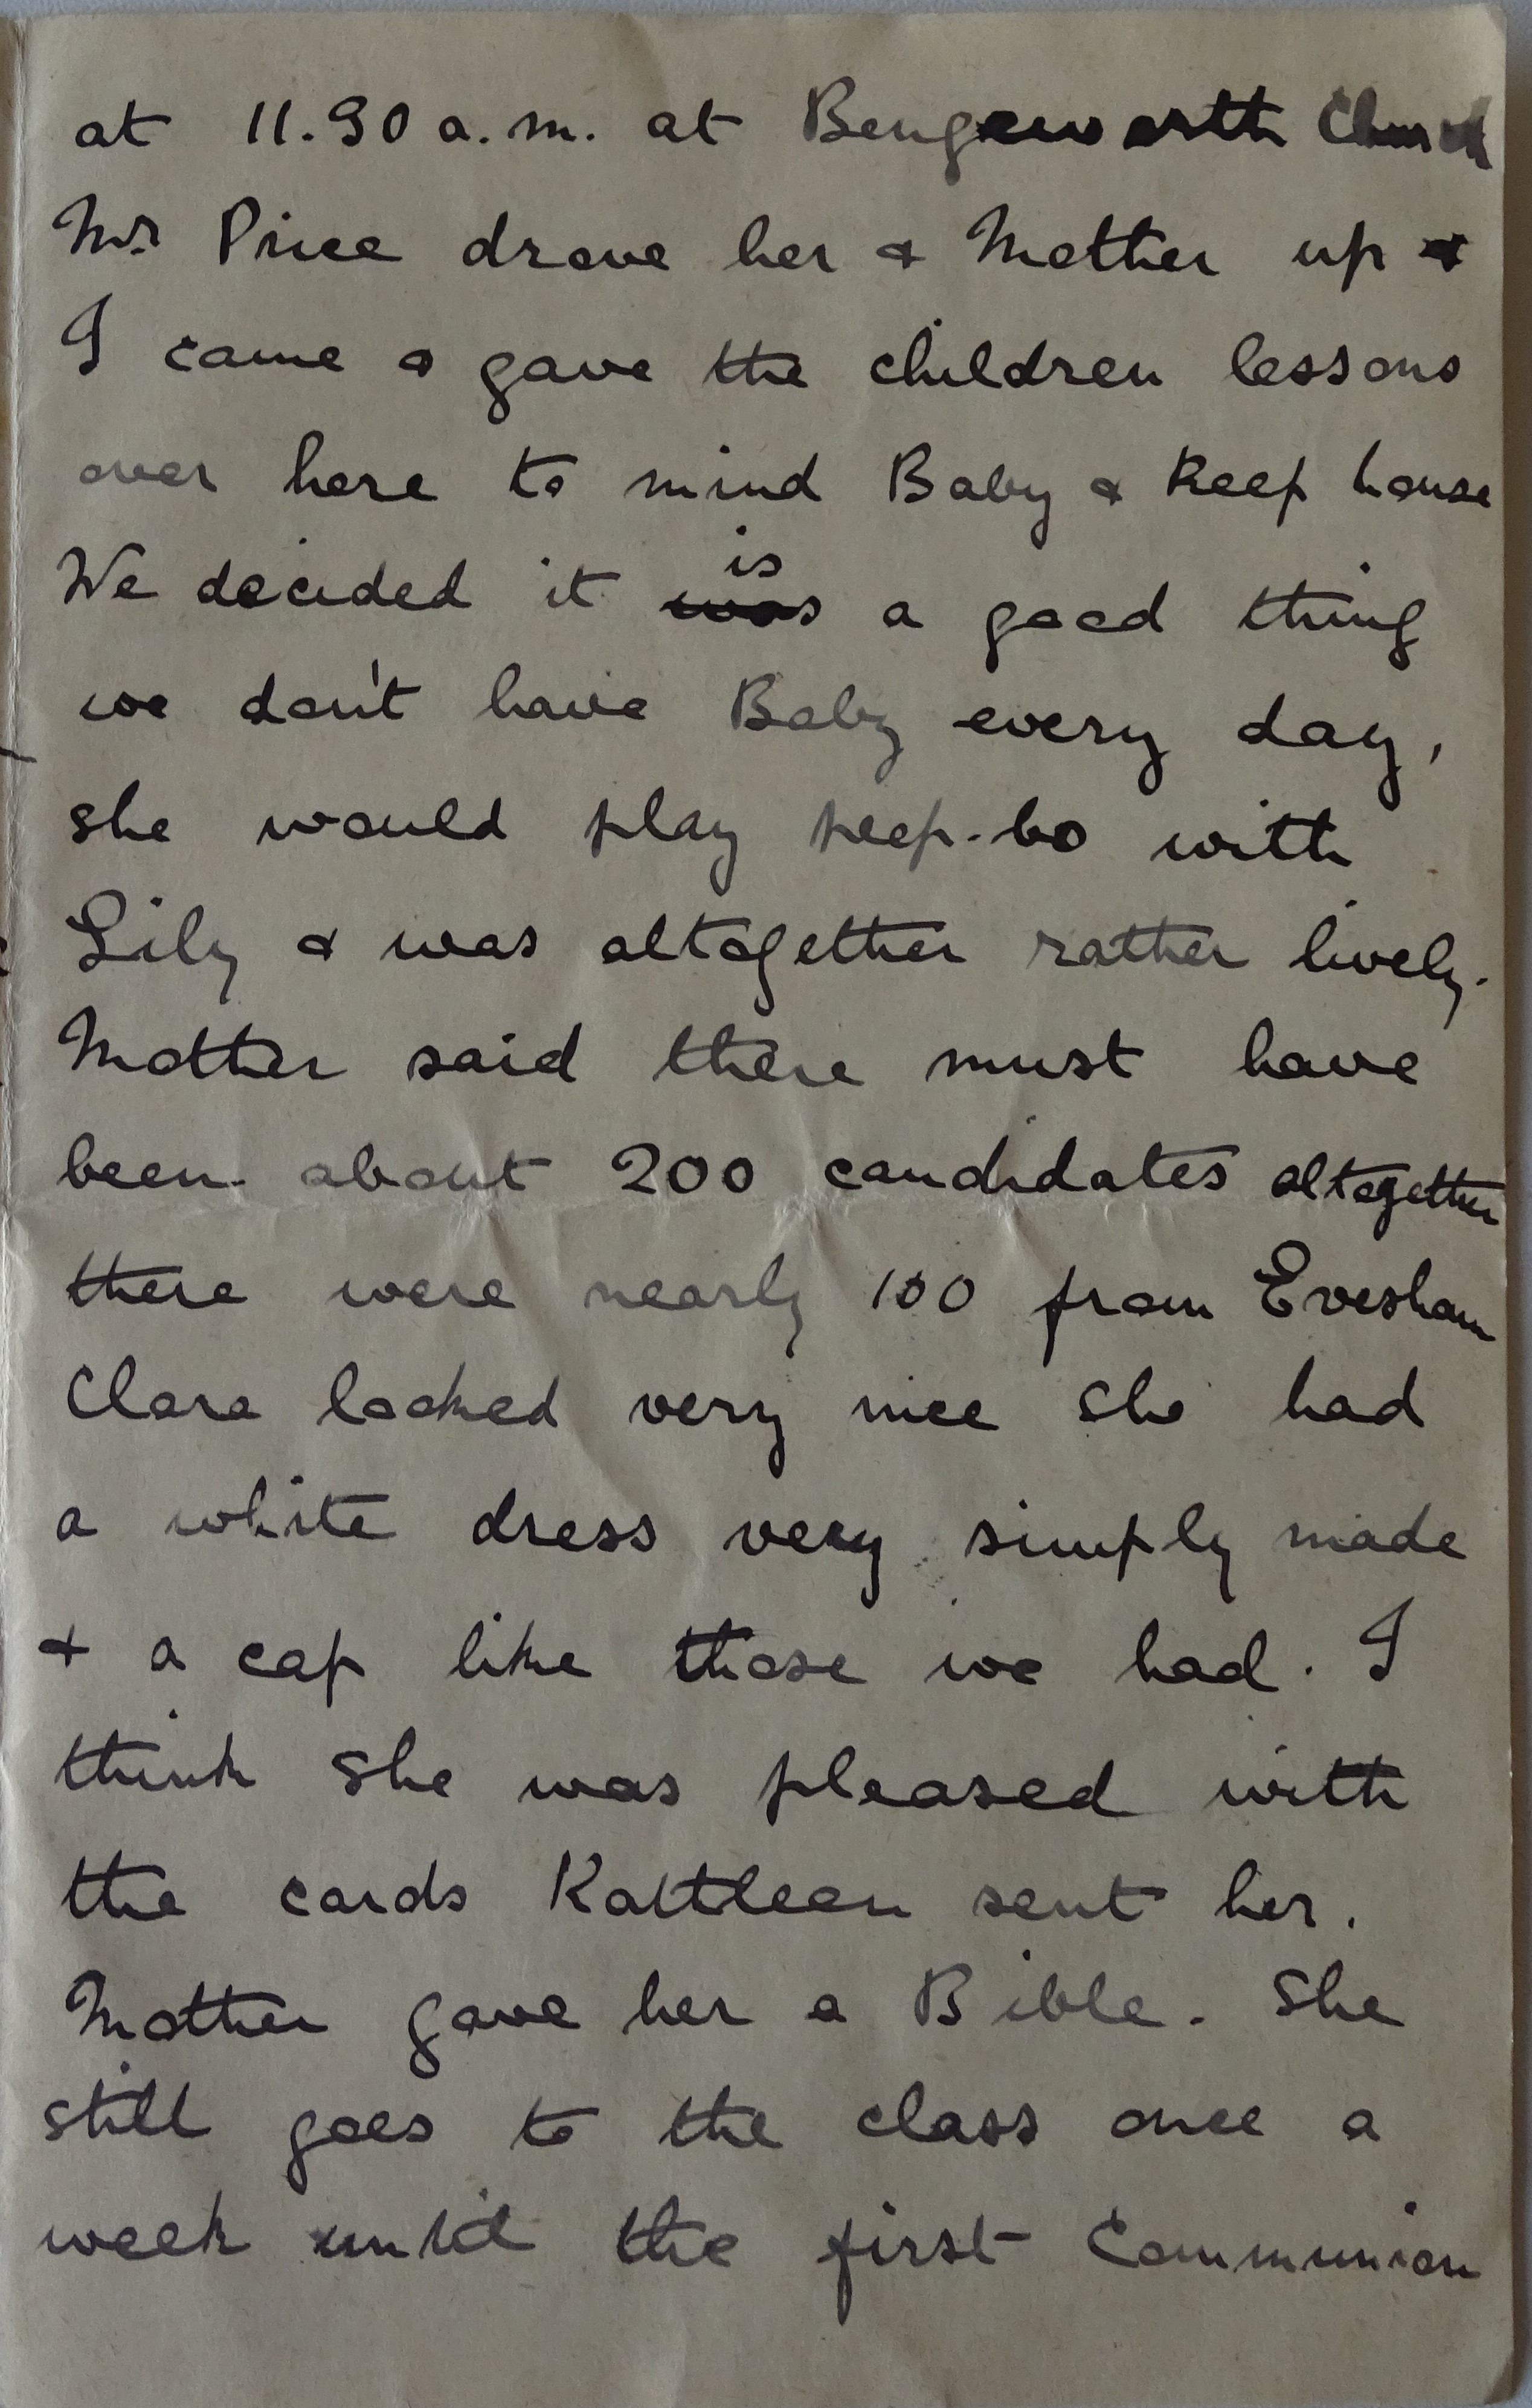 at 11.30 a.m. at Bengeworth Church
Mr Price drove her & Mother up &
I came & gave the children lessons
over here to mind Baby & keep house
We decided it ~~was~~ is a good thing
we don't have Baby every day,
she would play peep-bo with
Lily & was altogether rather lively.
Mother said there must have
been about 200 candidates altogether
there were nearly 100 from Evesham
Clara looked very nice she had
a white dress very simply made
& a cap like those we had. I
think she was pleased with
the cards Kathleen sent her.
Mother gave her a Bible. She
still goes to the class once a
week until the first Communion